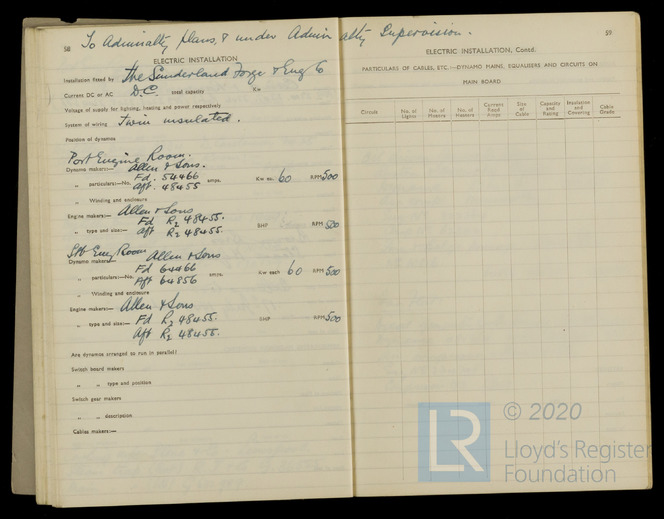 58
To Admiralty plans, & under Admiralty Supervision.
59
ELECTRIC INSTALLATION
Installation fitted by The Sunderland Forge & Eng Co
Current DC or AC D.C. total capacity Kw
Voltage of supply for lighting, heating and power respectively
System of wiring Twin insulated.
Position of dynamos
Port Engine Room.
Dynamo makers:— Allen & Sons.
„ particulars:—No. Fd. 54466 amps. Kw each 60 RPM 500
Aft. 48455
„ Winding and enclosure
Engine makers:— Allen & Sons
Fd R2 48455.
„ type and size:— aft R2 48455. BHP RPM 500
Stb Eng Room Allen & Sons
Dynamo makers
Fd 64466
„ particulars:—No. Aft 64856 amps. Kw each 60 RPM 500
„ Winding and enclosure
Engine makers:— Allen & Sons
„ type and size:— Fd R2 48455. BHP RPM 500
Aft R2 48455.
Are dynamos arranged to run in parallel?
Switch board makers
„ „ type and position
Switch gear makers
„ „ description
Cables makers:—
ELECTRIC INSTALLATION, Contd.
PARTICULARS OF CABLES, ETC.:—DYNAMO MAINS, EQUALISERS AND CIRCUITS ON
MAIN BOARD
Circuit No. of Lights No. of Motors No. of Heaters Current Reqd Amps Size of Cable Capacity and Rating Insulation and Covering Cable Grade
© 2020
LR
Lloyd's Register
Foundation